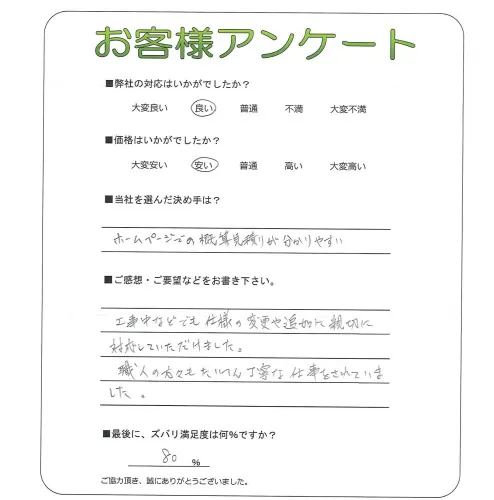 お客様アンケート
■弊社の対応はいかがでしたか？
大変良い 良い 普通 不満 大変不満
■価格はいかがでしたか？
大変安い 安い 普通 高い 大変高い
■当社を選んだ決め手は？
ホームページでの概算見積りが分かりやすい
■ご感想・ご要望などをお書き下さい。
工事中などでも仕様の変更や追加に親切に
対応していただけました。
職人の方々もたいへん丁寧な仕事をされていま
した。
■最後に、ズバリ満足度は何%ですか？
80 %
ご協力頂き、誠にありがとうございました。